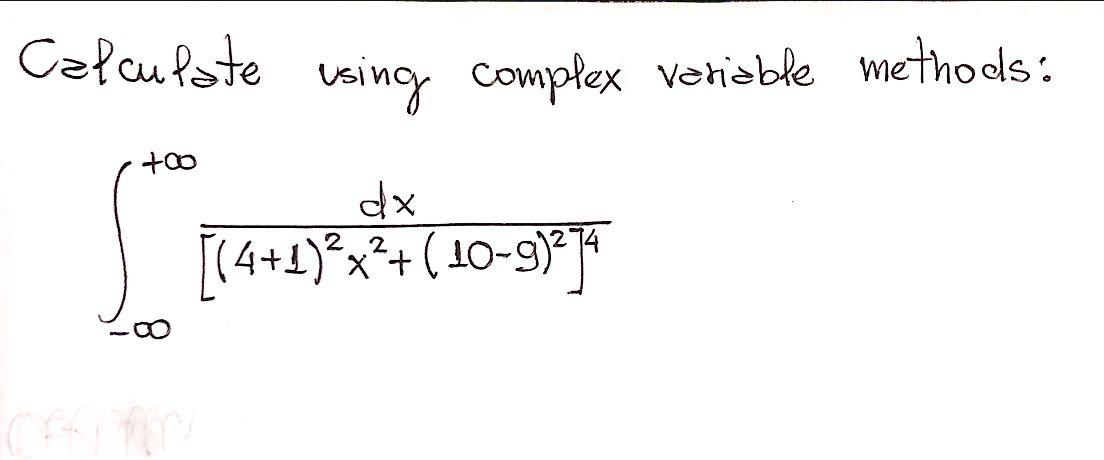 Calculate using complex variable methods:
+∞
dx
∫ ―――――――――
[(4+1)²x²+(10-9)²]⁴
-∞